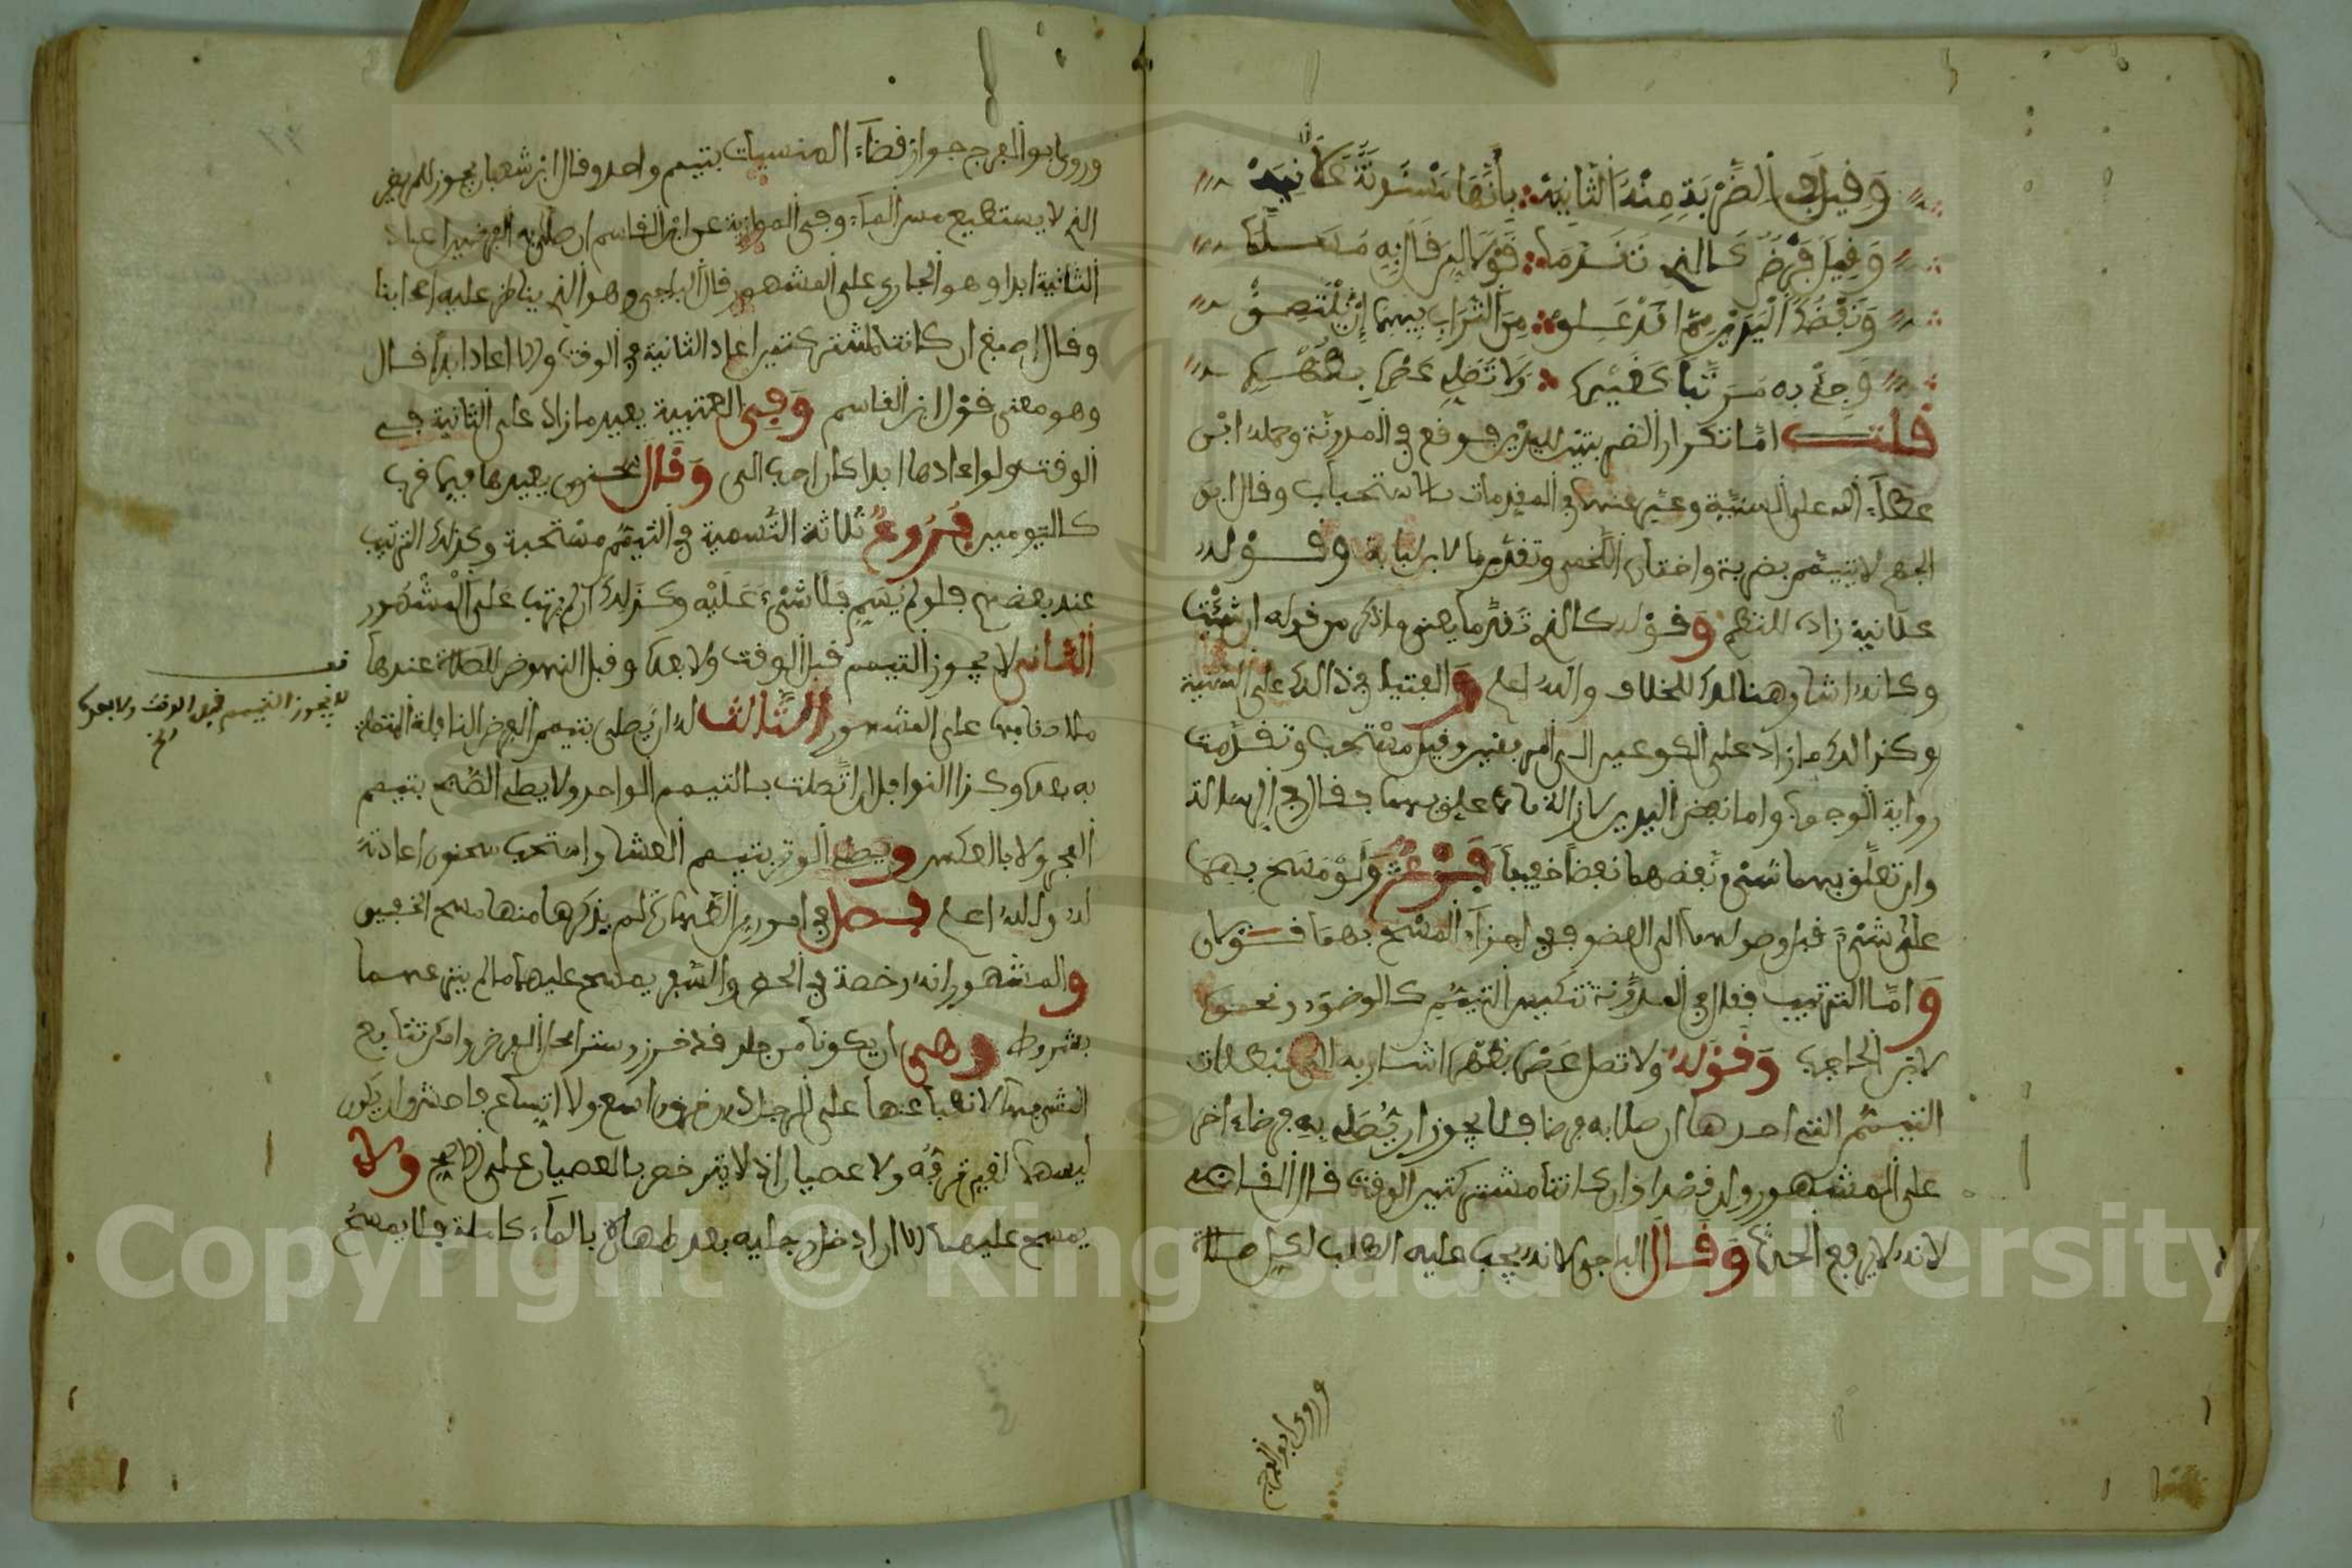 وقيل في الضربة منه الثانية بأنها مسنونة علانية
وقيل فرض كالذي تقدما قولان قال به من
ونفضك اليدين مما قد علق من التراب بهما إن يلتصق
وجئ به مرتبا كفيتها ولا تصل
قلت اما تكرار الضربتين لليدين فوقع في المدونة وحمله ابن
عطاء الله على السنية وغيره عنها في المقدمات بالاستحباب وقال ابن
الجهم لا يتيمم بضربة واختاره اللخمي وتقدم ما لابن لبابة وقوله
علانية زاده للنظم وقوله كالذي تقدما يعني ما ذكر من قوله ان شئت
وكانه اشار هنالك للخلاف والله اعلم والفتيا في ذلك على السنية
وكذا لك ما زاد على الكوعين الى المرفقين وقيل مستحب وتقدمت
رواية الوجوب واما نفض اليدين لازالة ما علق بهما فقال في الرسالة
وان تعلق بهما شيء نفضهما نفضا خفيفا فرع ولو مسح بهما
على شيء قبل وصولهما الى العضو ففي اجزاء المسح بهما قولان
واما الترتيب فقال في المدونة تنكيس التيمم كالوضوء ونحوه
لابن الحاجب وقوله ولا تصل اشار به الى مبطلات
التيمم التي احدها ان صلا به فرضا فلا يجوز ان يصلي به فرضا اخر
على المشهور وان قصدا وان كانتا مشتركتي الوقت قال القاضي
لانه لا يرفع الحدث وقال الباجي لانه يجب عليه الطلب لكل صلاة
وروى ابو الفرج
وروى ابو الفرج جواز قضاء المنسيات بتيمم واحد وقال ابن شعبان يجوز للمريض
الذي لا يستطيع مس الماء وفي الموازية عن ابن القاسم ان صلى به الفرضين اعاد
الثانية ابدا وهو الجاري على المشهور قال الباجي وهو الذي يناظر عليه اصحابنا
وقال اصبغ ان كانتا مشتركتين اعاد الثانية في الوقت والا اعاد ابدا قال
وهو معنى قول ابن القاسم وفي العتبية يعيد ما زاد على الثانية في
الوقت ولو اعادها ابدا كان احب الي وقال سحنون يعيدها فيما قرب
كاليومين فروع ثلاثة التسمية في التيمم مستحبة وكذلك الترتيب
عند بعضهم فلو لم يسم فلا شيء عليه وكذلك ان لم يرتب على المشهور
الثاني لا يجوز التيمم قبل الوقت ولا بعده وقبل النهوض للصلاة عندها
على المشهور الثالث له ان يصلي بتيمم الفرض النافلة المتصلة
به بعده وكذا النوافل ان اتصلت بالتيمم الواحد ولا يصلي الصبح بتيمم
الفجر ولا بالعكس ويصلي الوتر بتيمم العشا واستحب سحنون اعادته
له والله اعلم فصل في امور من الطهارة لم يذكرها منها مسح الخفين
والمشهور انه رخصة في الحضر والسفر يمسح عليهما ما لم ينزعهما
بشروط وهي ان يكونا من جلد قد خرز وستر محل الفرض وامكن تتابع
المشي فيهما ولا اتساع فاحش وان يكون
لبسهما لغير ترفه ولا عصيان اذ لا يترخص بالعصيان على الاصح ولا
يمسح عليهما الا ان ادخل رجليه بعد طهارة بالماء كاملة فلا يمسح
قف
لا يجوز التيمم قبل الوقت ولا بعده
الخ
Copyright © King Saud University